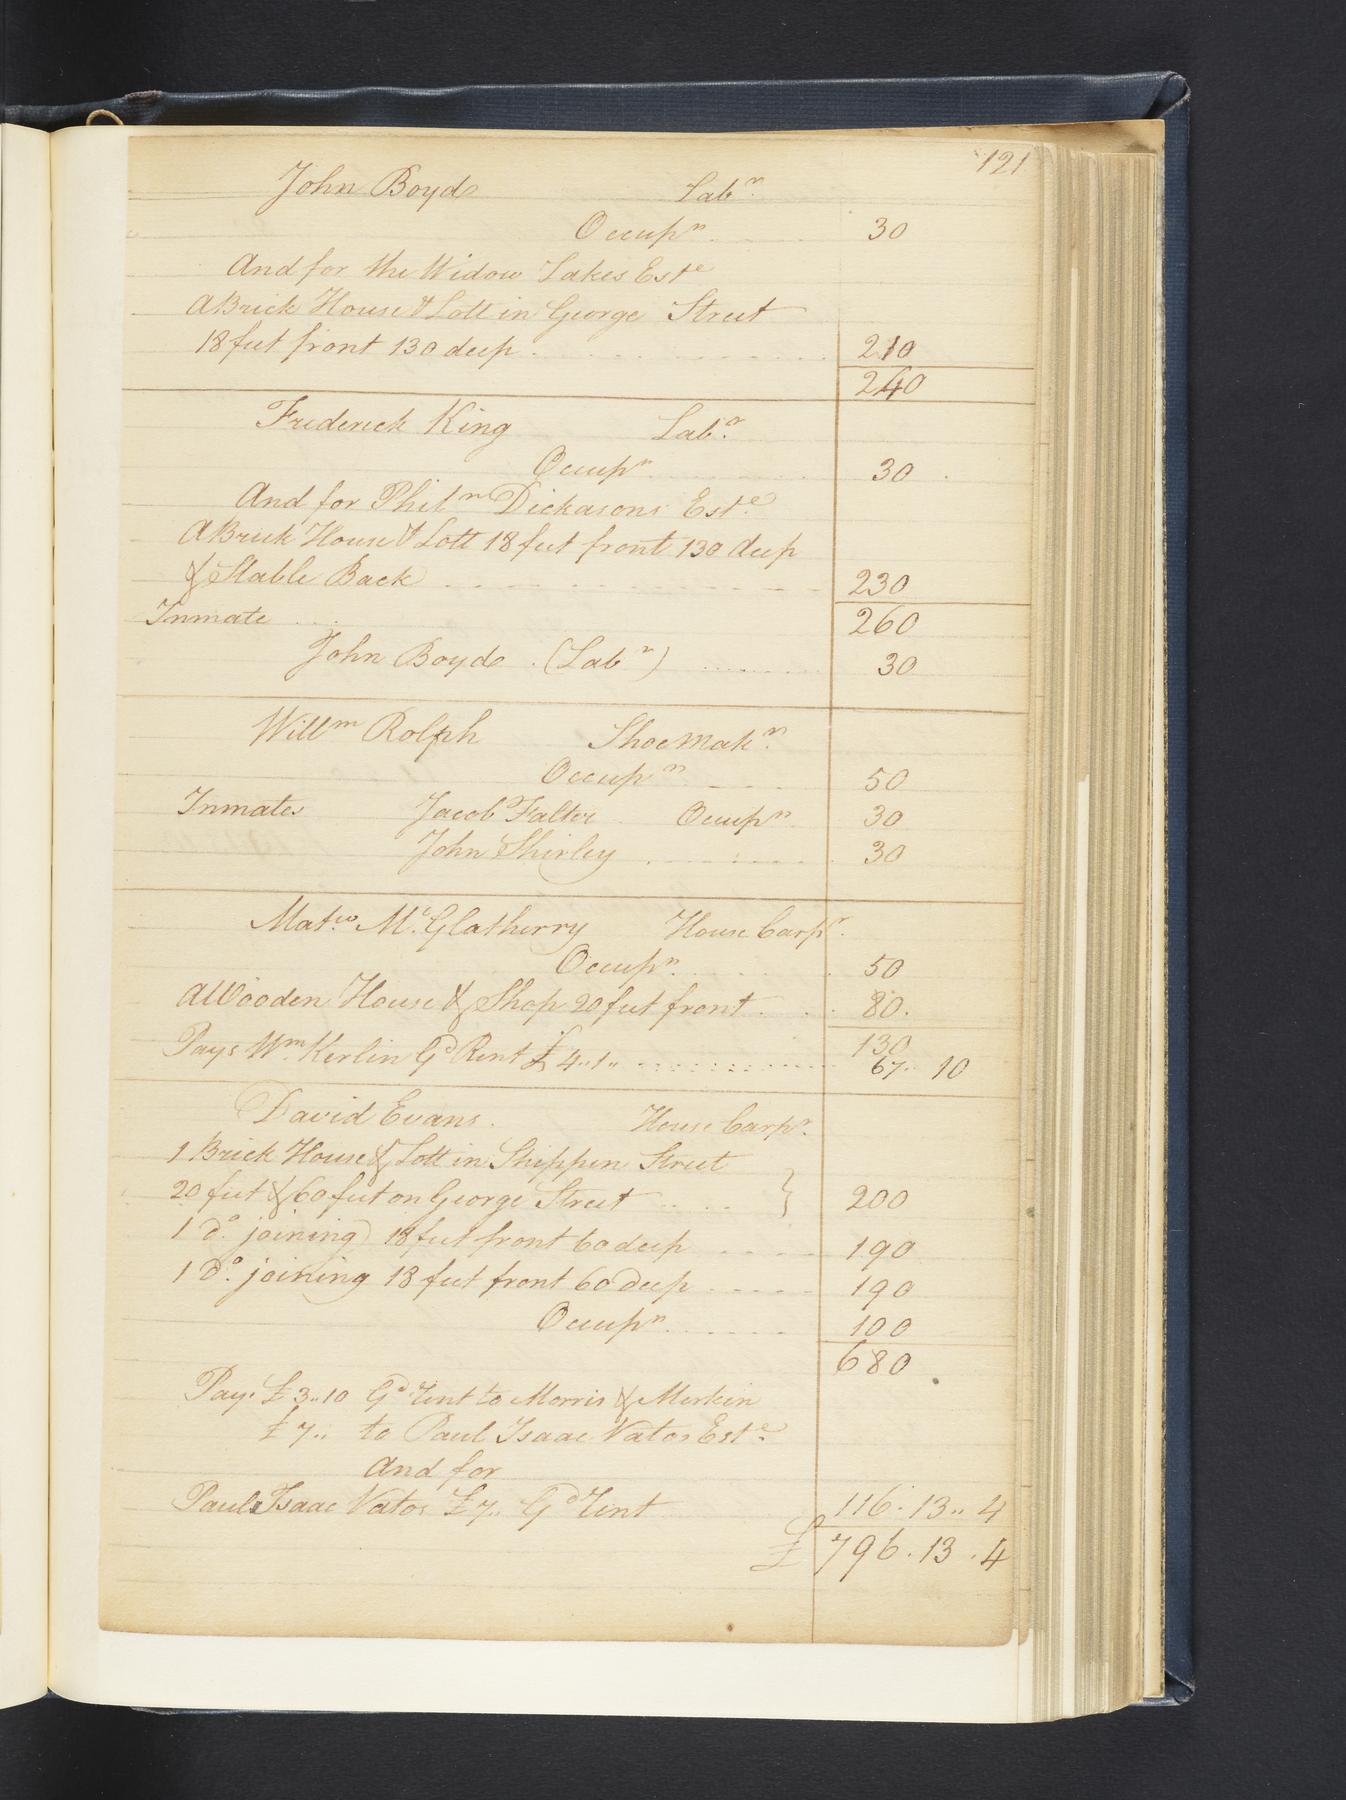 121
John Boyd Labr.
Occupn 30
And for the Widow Lakes Este
A Brick House & Lott in George Street
18 feet front 130 deep 210
240
Frederick King Labr.
Occupn 30
And for Philn Dickasons Este
A Brick House & Lott 18 feet front 130 deep
& Stable Back 230
Inmate 260
John Boyd (Labr) 30
Willm Rolph Shoe Makr.
Occupn 50
Inmates Jacob Falter Occupn 30
John Shirley 30
Matw. McGlatherry House Carpr.
Occupn. 50
A Wooden House & Shop 20 feet front 80.
130
Pays Wm. Kerlin Gd Rent £4..1.. 67.. 10
David Evans. House Carpr.
1 Brick House & Lott in Shippen Street
20 feet & 60 feet on George Street 200
1 do. joining 18 feet front 60 deep 190
1 Do. joining 18 feet front 60 deep 190
Occupn 100
680
Pays £3..10 Gd Rent to Morris & Merkin
£7.. to Paul Isaac Vatos Este.
And for
Paul Isaac Vatos £7.. Gd Rent 116. 13.. 4
£ 796. 13. 4